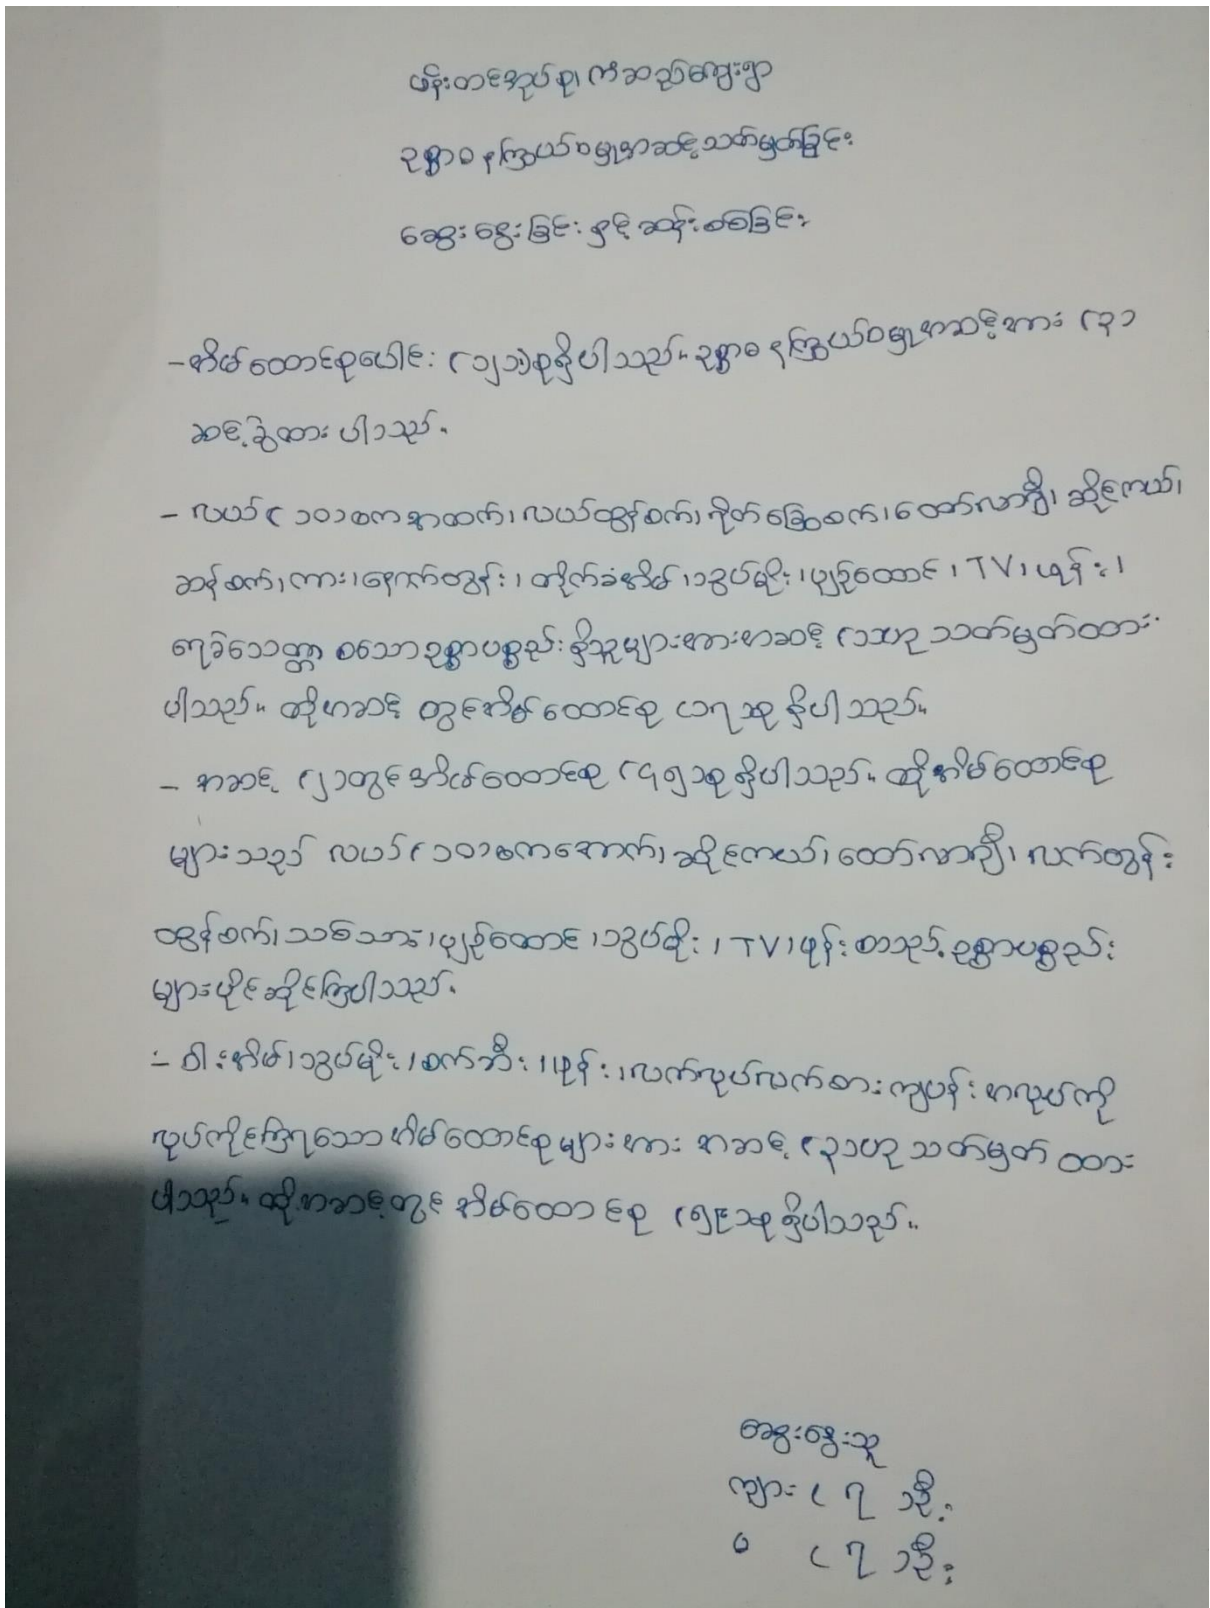 ဖန်းတင်အုပ်စု၊ ကံဆည်ကျေးရွာ
ဥစ္စာဓနကြွယ်ဝမှုအဆင့်သတ်မှတ်ခြင်း
ဆွေးနွေးခြင်းနှင့်ဆန်းစစ်ခြင်း
-အိမ်ထောင်စုပေါင်း စုရှိပါသည်။ ဥစ္စာဓနကြွယ်ဝမှုအဆင့်အား (၃)
ဆင့်ခွဲထားပါသည်။
- လယ် (၁၀)ဧကအထက်၊ လယ်ထွန်စက်၊ ရိတ်ခြွေစက်၊ ထော်လာဂျီ၊ ဆိုင်ကယ်၊
ဆန်စက်၊ ကား၊ နောက်တွန်း၊ တိုက်ခံအိမ်၊ သွပ်မိုး၊ ပျဉ်ထောင်၊ TV၊ ဖုန်း၊
ရေခဲသေတ္တာ စသောဥစ္စာပစ္စည်းရှိသူများအားအဆင့် (၁)ဟုသတ်မှတ်ထား
ပါသည်။ ထိုအဆင့်တွင်အိမ်ထောင်စု ရှိပါသည်။
- အဆင့် (၂)တွင်အိမ်ထောင်စု (၄၅)စုရှိပါသည်။ ထိုအိမ်ထောင်စု
များသည် လယ် (၁၀)ဧကအောက်၊ ဆိုင်ကယ်၊ ထော်လာဂျီ၊ လက်တွန်း
ထွန်စက်၊ သစ်သား၊ ပျဉ်ထောင်၊ သွပ်မိုး၊ TV၊ ဖုန်းစသည့်ဥစ္စာပစ္စည်း
များပိုင်ဆိုင်ကြပါသည်။
- ဝါးအိမ်၊ သွပ်မိုး၊ စက်ဘီး၊ ဖုန်း၊ လက်လုပ်လက်စား ကျပန်းအလုပ်ကို
လုပ်ကိုင်ကြရသောအိမ်ထောင်စုများအား အဆင့် (၃)ဟုသတ်မှတ်ထား
ပါသည်။ ထိုအဆင့်တွင်အိမ်ထောင်စု (၅၉)စုရှိပါသည်။
ဆွေးနွေးသူ
ကျား (၇)ဦး
မ (၇)ဦး